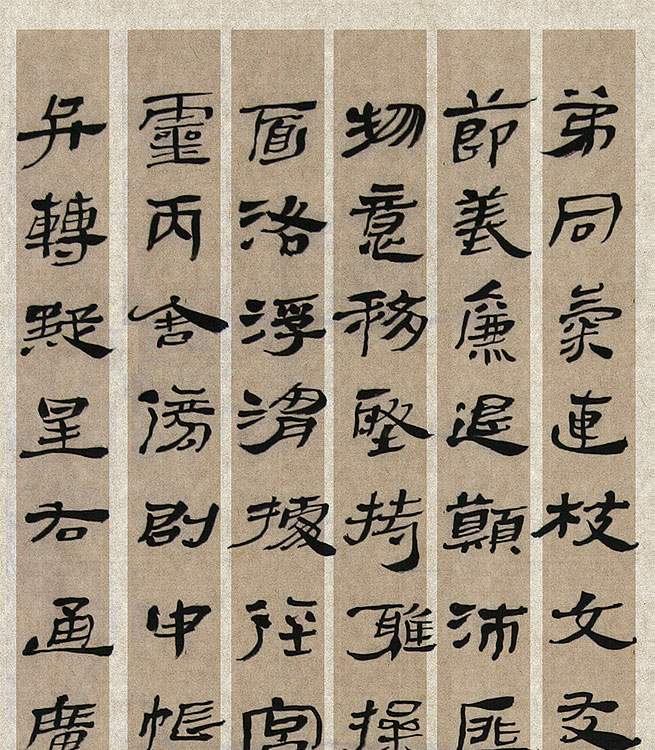 弟同氣連枝交友
節義廉退顛沛匪
物意移堅持雅操
面洛浮渭據涇宮
靈丙舍傍啟甲帳
弁轉疑星右通廣